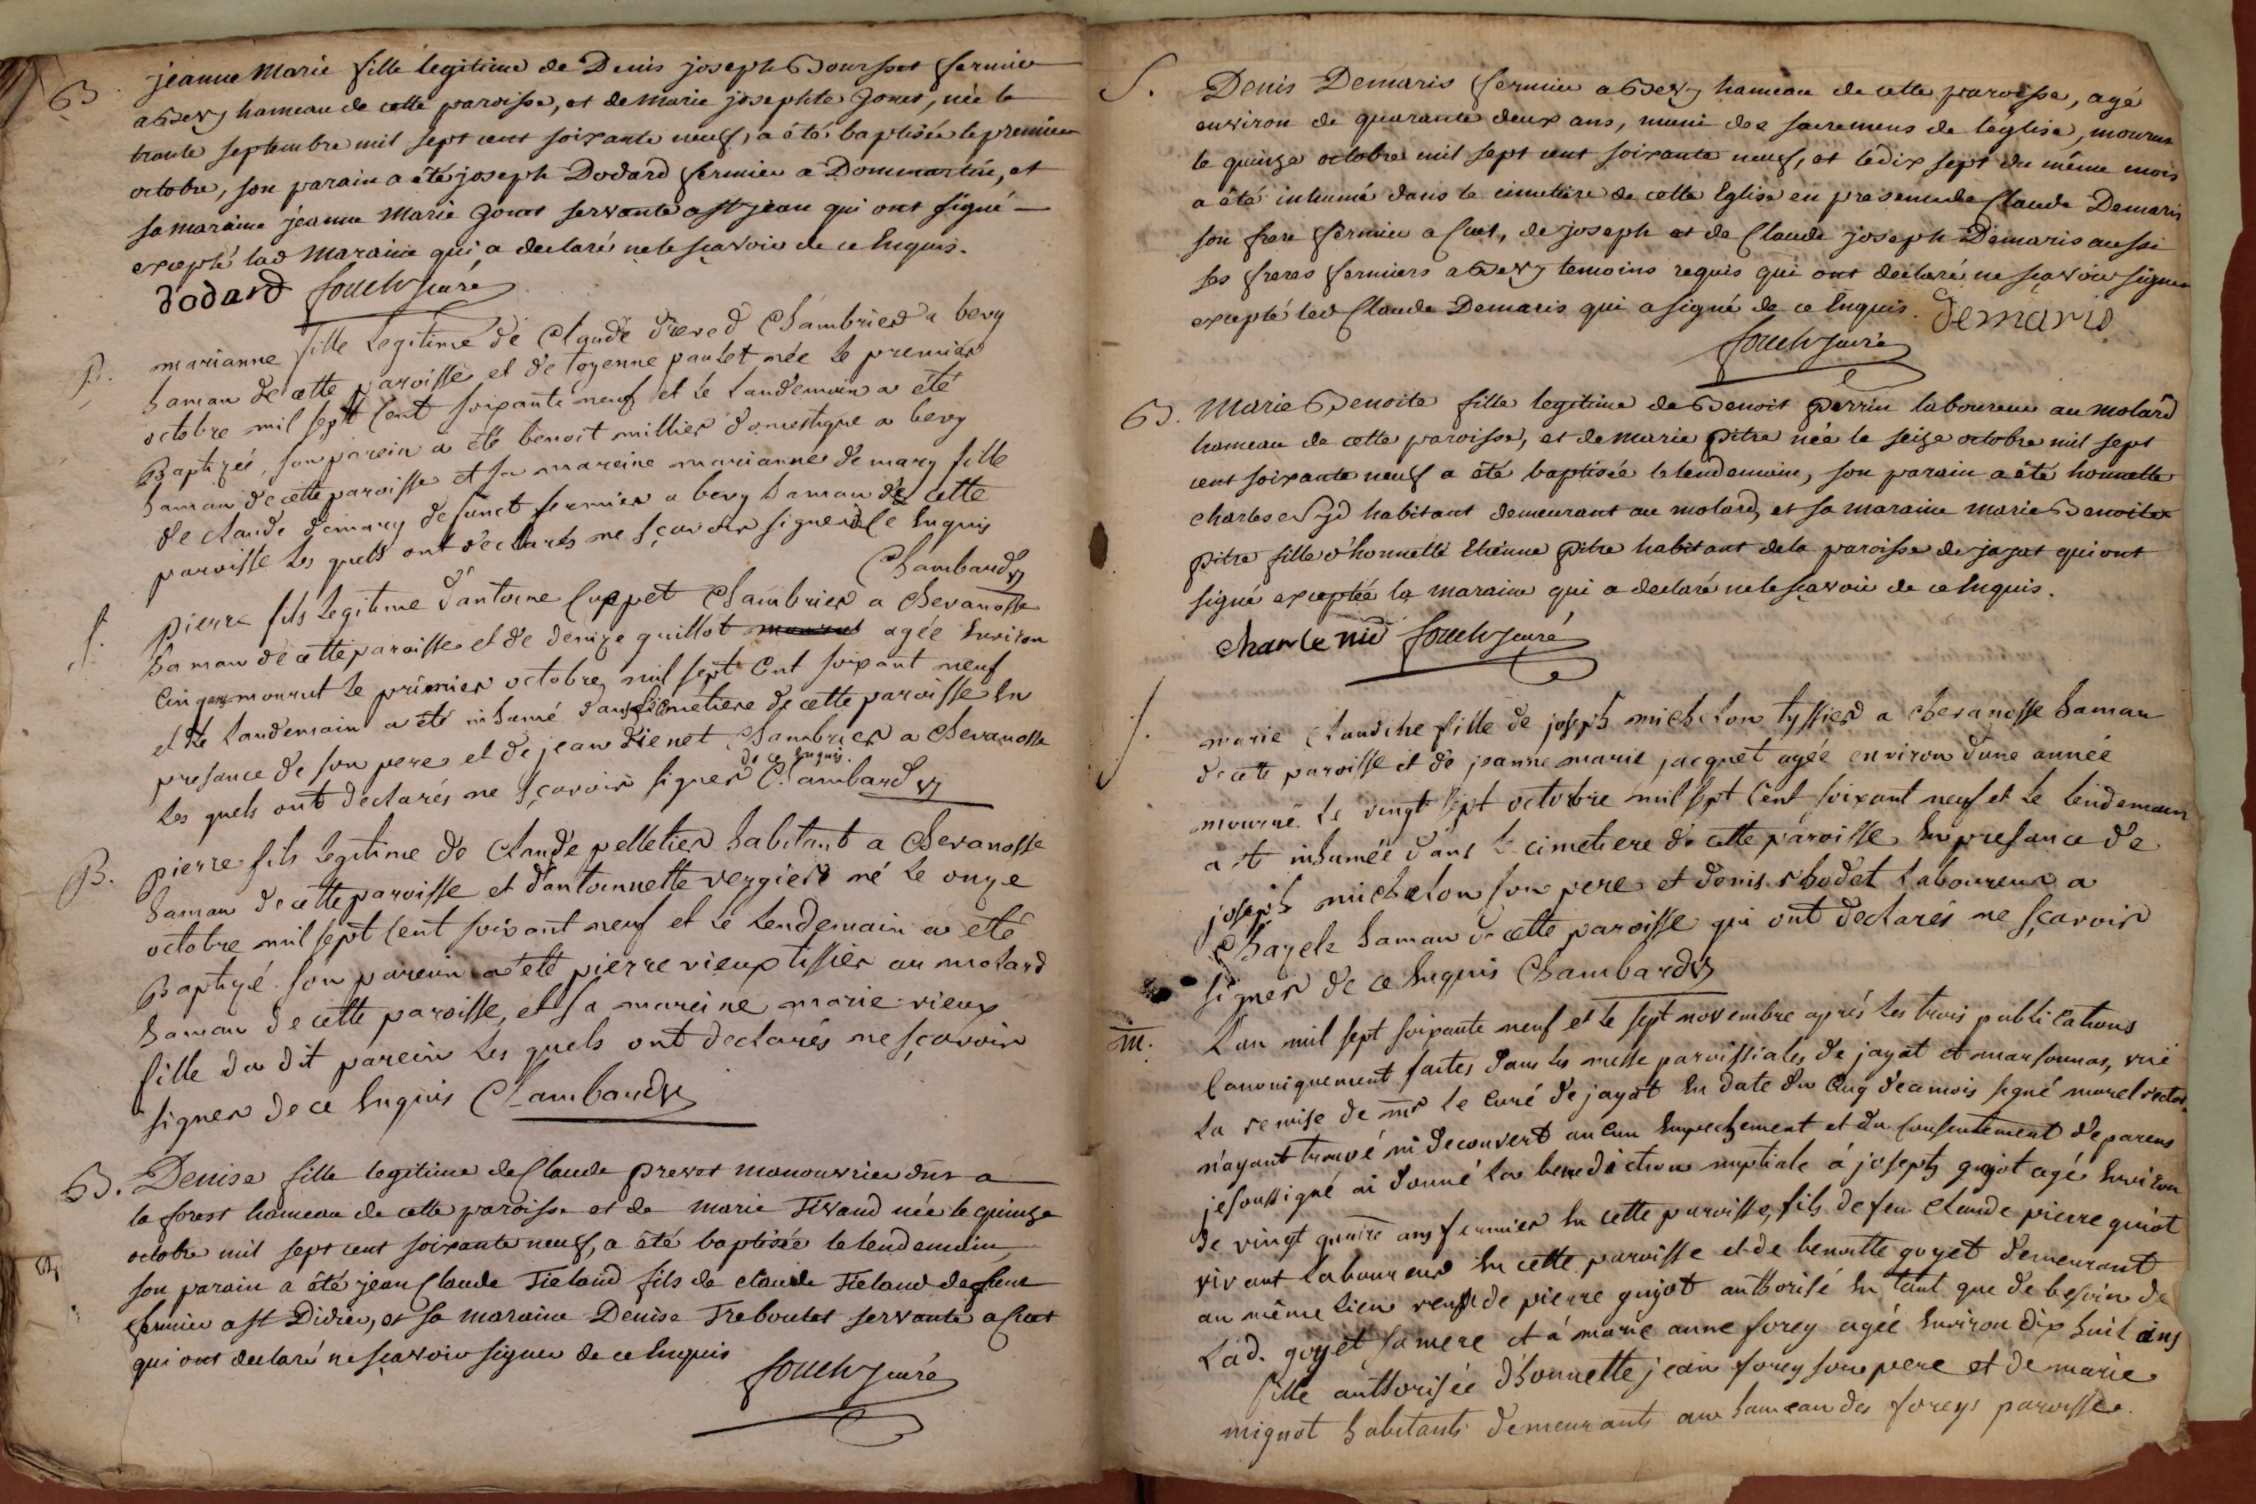 B. jeanne Marie fille legitime de Denis joseph Boursset fermier
a Bevy hameau de cette paroisse, et de Marie josephte Jonet, née le
trente septembre mil sept cent soixante neuf, a été baptisée le premier
octobre, son parain a été joseph Dodard fermier a Dommartin, et
sa maraine jeanne Marie Jonet servante a St jean qui ont signé
excepté lad maraine qui a declaré ne le sçavoir de ce Enquis.
dodard fouch curé
B. marianne fille legitime de Claude chambrier a bevy
hamau de cette paroisse et de toyenne paulet née le premier
octobre mil sept Cent soixante neuf et le Landemain a été
Baptizéé, son parein a été benoit millier domestique a bevy
hamau de cette paroisse et sa mareine marianne demary fille
de claude demary defunct fermier a bevy hamau de cette
paroisse les quels ont declarés ne sçavoir signer de Ce Enquis
Chambardy
S. pierre fils legitime d'antoine Cuppet Chambrier a Chevanosse
hamau de cette paroisse et de denize guillot agée Environ
Cinq ans mourut le premier octobre mil sept Cent soixant neuf
et le Landemain a été inhumé dans le Cimetiere de cette paroisse En
presance de son pere et de jean dienet Chambrier a Chevanosse
de ce Enquis.
les quels ont declarés ne sçavoir signer Chambardy
B. pierre fils legitime de Claude pelletier habitant a Chevanosse
hamau de cette paroisse et d'antoinnette veggier né le onze
octobre mil sept Cent soixant neuf et le Lendemain a été
Baptizé. son parein a été pierre vieux tissier au molard
hamau de cette paroisse, et sa mareine marie vieux
fille du dit parein les quels ont declarés ne sçavoir
signer de ce Enquis Chambardy
B. Denise fille legitime de Claude prevot manouvrier a
la forest hameau de cette paroisse et de marie Tivaud née le quinze
octobre mil sept cent soixante neuf, a été baptisée le lendemain
son parain a été jean Claude Tieland fils de claude Tieland
fermier a St Didier, et sa maraine Denise Treboulet servante a Cuet
qui ont declaré ne sçavoir signer de ce Enquis
fouch curé
S. Denis Demaris fermier a Bevy hameau de cette paroisse, agé
environ de quarante deux ans, muni des sacremens de l'église, mourut
le quinze octobre mil sept cent soixante neuf, et le dix sept du même mois
a été inhumé dans le cimetiere de cette Eglise en presence de Claude Demaris
son frere fermier a Cuet, de joseph et de Claude joseph Demaris aussi
ses freres fermiers a Bevy temoins requis qui ont declaré ne sçavoir signer
excepté led Claude Demaris qui a signé de ce Enquis. demaris
fouch curé
B. Marie Benoite fille legitime de Benoit Perrin laboureur au molard
hameau de cette paroisse, et de marie pitre née le seize octobre mil sept
cent soixante neuf a été baptisée le lendemain, son parain a été honnette
charles Nyd habitant demeurant au molard, et sa maraine marie Benoite
pitre fille d'honnette Etienne pitre habitant de la paroisse de jayat qui ont
signé exceptée la maraine qui a declaré ne le sçavoir de ce Enquis.
charle nid fouch curé
S. marie claudine fille de joseph michelon tyssier a chevanosse hamau
de cette paroisse et de jeanne marie jacquet agéé environ d'une année
mourue le vingt sept octobre mil sept Cent soixant neuf et le lendemain
a été inhumée dans le cimetiere de cette paroisse En presance de
joseph michelon son pere et denis rbodet laboureur a
hamau de cette paroisse qui ont declarés ne sçavoir
signer de ce Enquis Chambardy
m. L'an mil sept soixante neuf et le sept novembre aprés les trois publications
Canoniquement faites dans les messe paroissiales de jayat et marsonnas, vüe
la remise de mr le Curé de jayat En date du Cinq de ce mois signé morel
n'ayant trouvé ni decouvert aucun Empechement et du Consentement de parens
je soussigné ai donné la benediction nuptiale á joseph guyot agé Environ
de vingt quatre ans fermier En cette paroisse, fils de feu Claude pierre guiot
vivant laboureur En cette paroisse et de benoitte goyet demeurant
au même lieu veufve de pierre guyot authorisé En tant que de besoin de
Lad. goyet sa mere et á marie anne forey agéé Environ dix huit ans
fille authorisée d'honnette jean forey son pere et de marie
mignot habitants demeurants au hameau des foreys paroisse